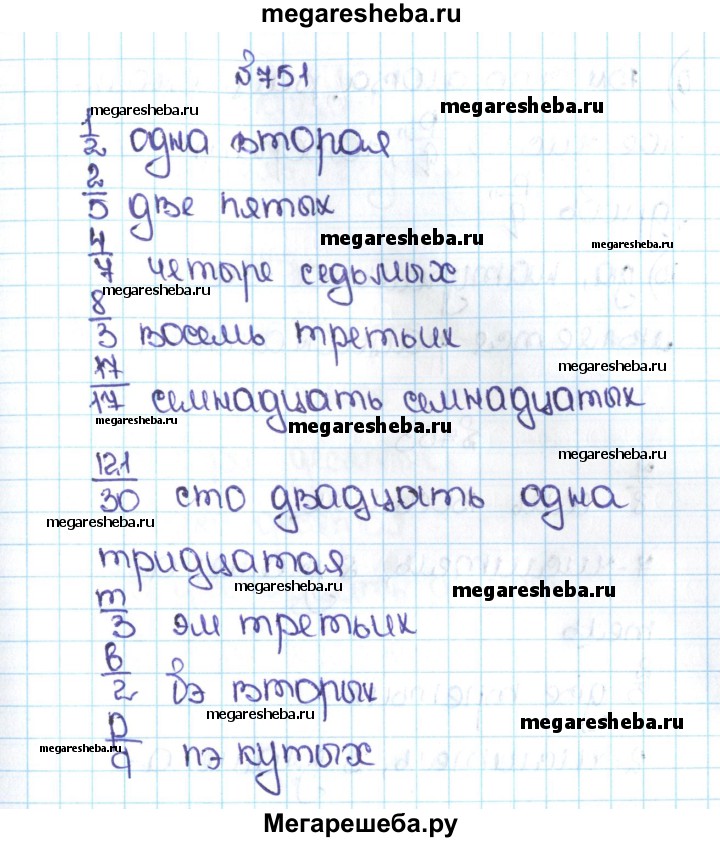 megaresheba.ru
№751
megaresheba.ru
megaresheba.ru
1/2 одна вторая
2/5 две пятых
megaresheba.ru
megaresheba.ru
4/7 четыре седьмых
megaresheba.ru
8/3 восемь третьих
megaresheba.ru
17/17 семнадцать семнадцатых
megaresheba.ru
megaresheba.ru
megaresheba.ru
121/30 сто двадцать одна
megaresheba.ru
тридцатая
megaresheba.ru
megaresheba.ru
m/3 эм третьих
b/2 бэ вторых
megaresheba.ru
megaresheba.ru
p/q пэ кутых
megaresheba.ru
Мегарешеба.ру